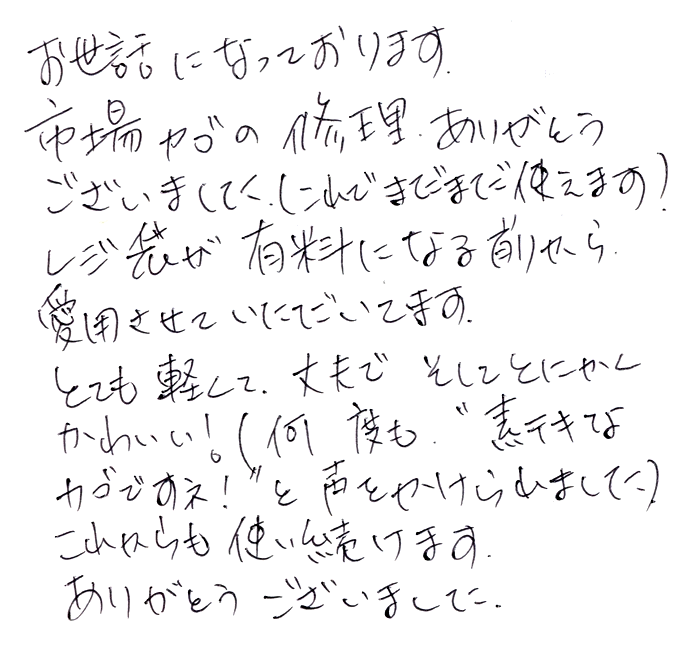 お世話になっております.
市場カゴの修理.ありがとう
ございました.(これでまだまだ使えます)
レジ袋が有料になる前から.
愛用させていただいてます.
とても軽くて.丈夫でそしてとにかく
かわいい!(何度も.“素テキな
カゴですネ!”と声をかけられました)
これからも使い続けます.
ありがとうございました.